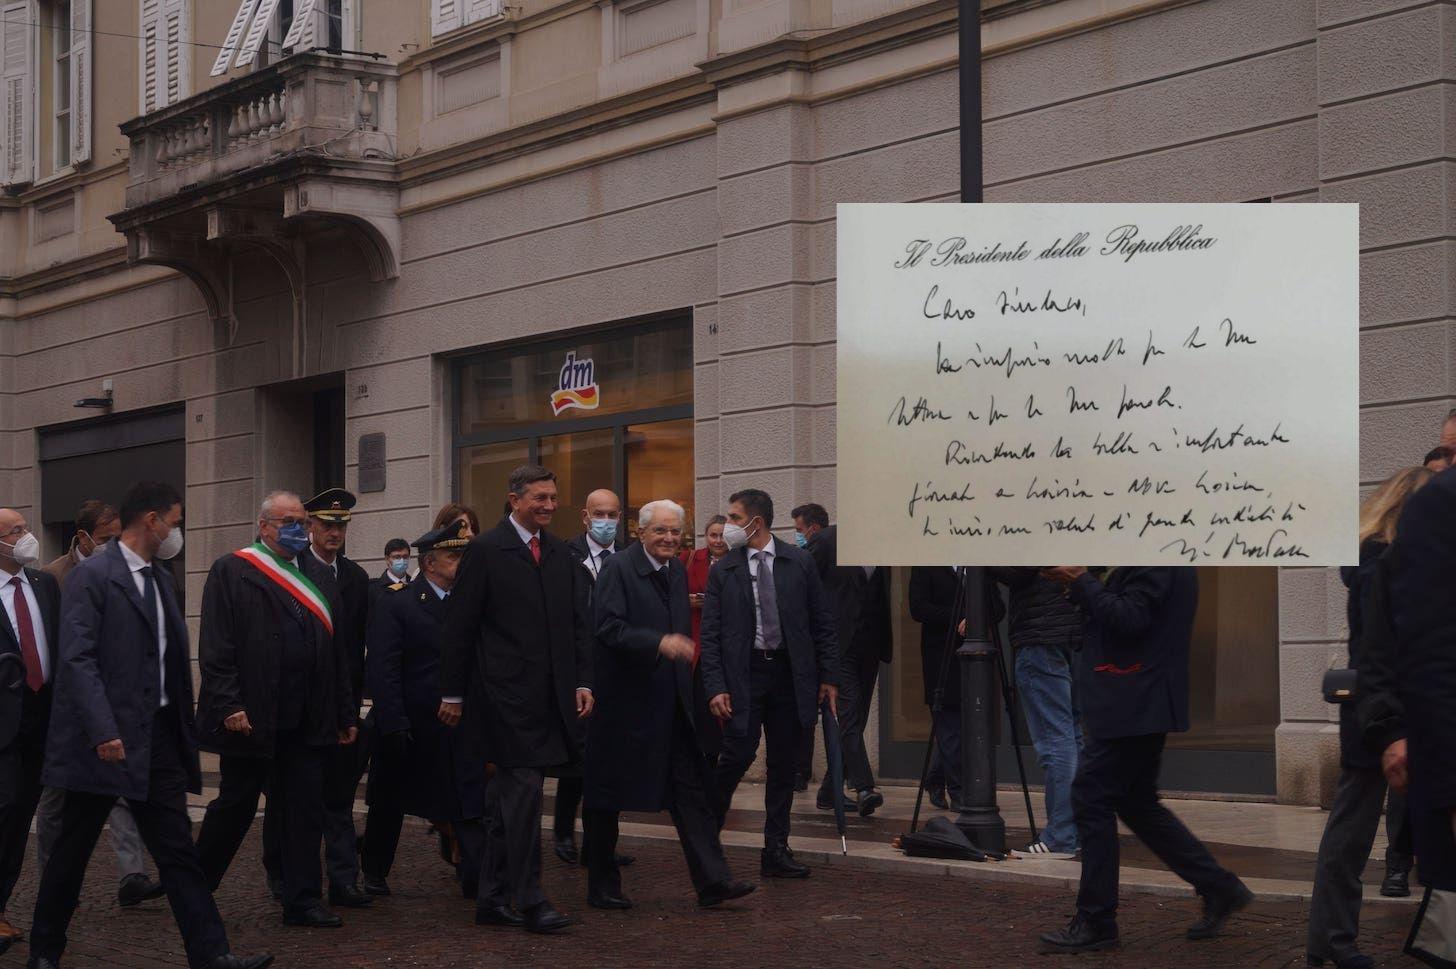 dm
Il Presidente della Repubblica
Caro Sindaco,
La ringrazio molto per la Sua
lettera e per le Sue parole.
Ricordando la bella e importante
giornata a Gorizia e Nova Gorica,
Le invio un saluto di grande cordialità